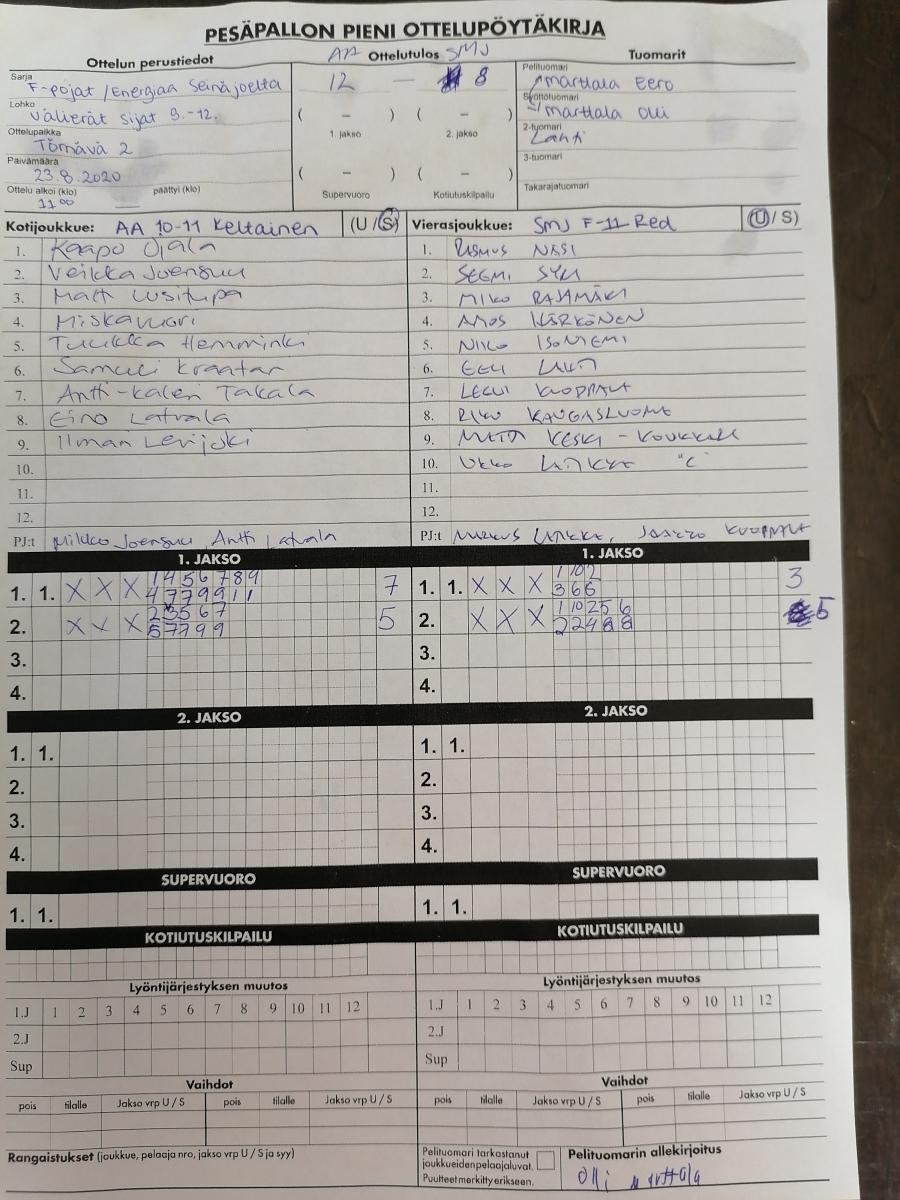 PESÄPALLON PIENI OTTELUPÖYTÄKIRJA
Ottelun perustiedot
AA Ottelutulos SMJ
Tuomarit
Sarja
F-pojat / Energiaa Seinäjoelta
12 — 8
Pelituomari
Marttala Eero
Lohko
Välierät sijat 9.-12.
( – ) ( – )
Syöttötuomari
Marttala Olli
Ottelupaikka
Törnävä 2
1. jakso 2. jakso
2-tuomari
Lahti
Päivämäärä
23.8.2020
( – ) ( – )
3-tuomari
Ottelu alkoi (klo) päättyi (klo)
11 00
Supervuoro Kotiutuskilpailu
Takarajatuomari
Kotijoukkue: AA 10-11 Keltainen (U / S)
1. Kaapo Ojala
2. Veikka Joensuu
3. Matt Uusitupa
4. Miska Vuori
5. Tuukka Hemminki
6. Samuli Kraatari
7. Antti-Kalei Takala
8. Eino Latvala
9. Ilmari Levijoki
10.
11.
12.
PJ:t Mikko Joensuu, Antti Latvala
Vierasjoukkue: SMJ F-11 Red (U / S)
1. RASMUS NÄSI
2. SEEMI
3. MIKO RAJAMÄKI
4. AMOS KÄRKÖNEN
5. NIILO ISONIEMI
6. EELI
7. LEEVI KUOPPALA
8. RIKU KANGASLUOMA
9. KESKI-KOUKKARI
10. UKKO "C"
11.
12.
PJ:t MARKUS KUOPPALA
1. JAKSO
1. 1. X X X 1 4 5 6 7 8 9 7
4 7 7 9 9 1 1
2. X X X 2 3 5 6 7 5
5 7 7 9 9
3.
4.
1. JAKSO
1. 1. X X X 1 10 2 3
3 6 6
2. X X X 1 10 2 5 6 5
2 2 4 8 8
3.
4.
2. JAKSO
1. 1.
2.
3.
4.
2. JAKSO
1. 1.
2.
3.
4.
SUPERVUORO
1. 1.
SUPERVUORO
1. 1.
KOTIUTUSKILPAILU
KOTIUTUSKILPAILU
Lyöntijärjestyksen muutos
1.J 1 2 3 4 5 6 7 8 9 10 11 12
2.J
Sup
Lyöntijärjestyksen muutos
1.J 1 2 3 4 5 6 7 8 9 10 11 12
2.J
Sup
Vaihdot
pois tilalle Jakso vrp U / S pois tilalle Jakso vrp U / S
Vaihdot
pois tilalle Jakso vrp U / S pois tilalle Jakso vrp U / S
Rangaistukset (joukkue, pelaaja nro, jakso vrp U / S ja syy)
Pelituomari tarkastanut
joukkueiden pelaajaluvat.
Puutteet merkitty erikseen.
Pelituomarin allekirjoitus
Olli Marttala